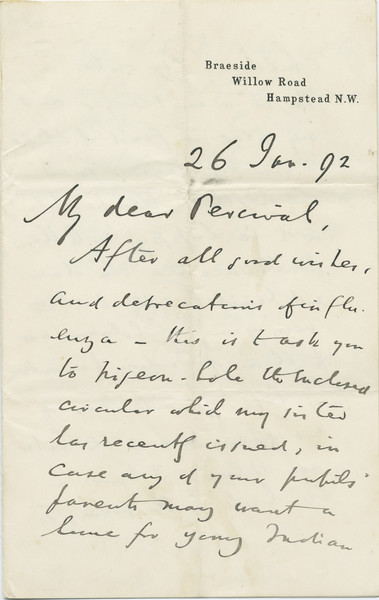 Braeside
Willow Road
Hampstead N.W.
26 Jan. 92
My dear Percival,
After all good wishes,
and deprecations of influ-
enza – this is to ask you
to pigeon-hole the enclosed
circular which my sister
has recently issued, in
case any of your pupils'
parents may want a
home for young Indian